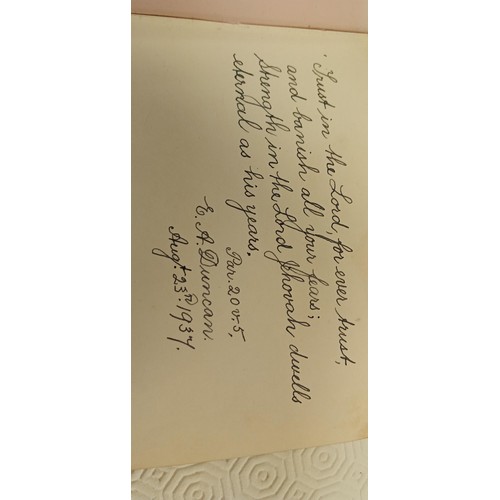 'Trust in the Lord, for ever trust,
and banish all your fears;
Strength in the Lord Jehovah dwells
eternal as his years.
Par. 20 v. 5.
E. A. Duncan.
Augt. 23rd 1937.